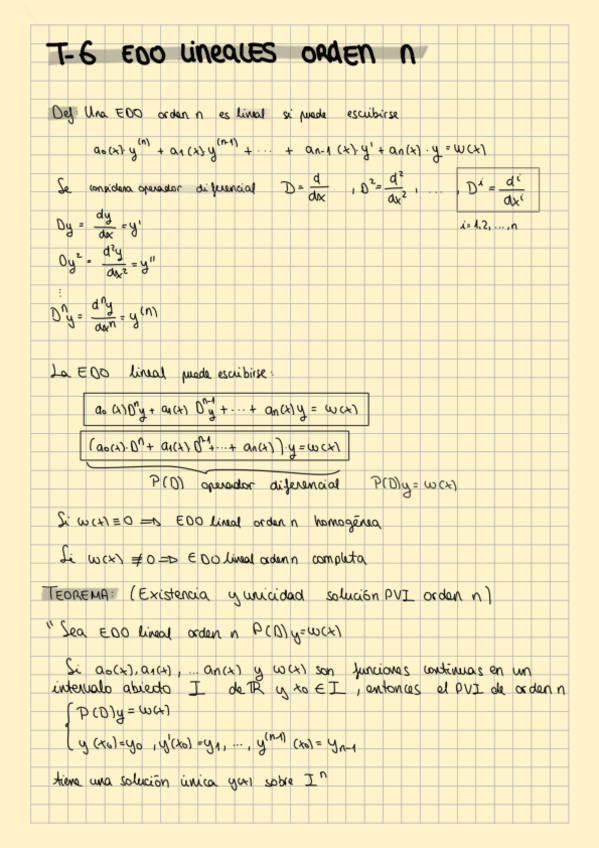 T-6 EDO LINEALES ORDEN n
Def: Una EDO orden n es lineal si puede escribirse
a₀(x)·y⁽ⁿ⁾ + a₁(x)·y⁽ⁿ⁻¹⁾ + ··· + aₙ₋₁(x)·y' + aₙ(x)·y = w(x)
Se considera operador diferencial D = d/dx , D² = d²/dx² , ... , Dⁱ = dⁱ/dxⁱ
i=1,2,...,n
Dy = dy/dx = y'
Dy² = d²y/dx² = y''
⋮
Dⁿy = dⁿy/dxⁿ = y⁽ⁿ⁾
La EDO lineal puede escribirse:
a₀(x)Dⁿy + a₁(x) Dⁿ⁻¹y + ··· + aₙ(x)y = w(x)
(a₀(x)·Dⁿ + a₁(x)·Dⁿ⁻¹+...+ aₙ(x))·y = w(x)
P(D) operador diferencial P(D)y = w(x)
Si w(x) ≡ 0 ⟹ EDO lineal orden n homogénea
Si w(x) ≢ 0 ⟹ EDO lineal orden n completa
TEOREMA: (Existencia y unicidad solución PVI orden n)
"Sea EDO lineal orden n P(D)y = w(x)
Si a₀(x), a₁(x), ... aₙ(x) y w(x) son funciones continuas en un
intervalo abierto I de ℝ y x₀ ∈ I , entonces el PVI de orden n
{ P(D)y = w(x)
y(x₀)=y₀ , y'(x₀)=y₁, ..., y⁽ⁿ⁻¹⁾(x₀) = yₙ₋₁
tiene una solución única y(x) sobre Iⁿ